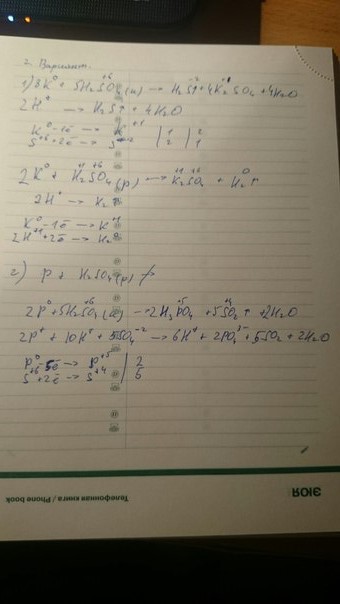 2 Вариант.
1) 8K⁰ + 5H₂S⁺⁶O₄(к) → H₂S⁻²↑ + 4K₂⁺¹SO₄ + 4H₂O
2H⁺ → H₂S↑ + 4H₂O
K⁰ - 1ē → K⁺¹ | 1 | 2
S⁺⁶ + 2ē → S⁻² | 2 | 1
2K⁰ + H₂⁺¹S⁺⁶O₄(р) → K₂⁺¹S⁺⁶O₄ + H₂⁰↑
2H⁺ → H₂↑
K⁰ - 1ē → K⁺¹
2H⁺¹ + 2ē → H₂⁰
2) P + H₂SO₄(р) ↛
2P⁰ + 5H₂S⁺⁶O₄(к) → 2H₃P⁺⁵O₄ + 5S⁺⁴O₂↑ + 2H₂O
2P⁰ + 10H⁺ + 5SO₄⁻² → 6H⁺ + 2PO₄³⁻ + 5SO₂ + 2H₂O
P⁰ - 5ē → P⁺⁵ | 2
S⁺⁶ + 2ē → S⁺⁴ | 5
Телефонная книга / Phone book